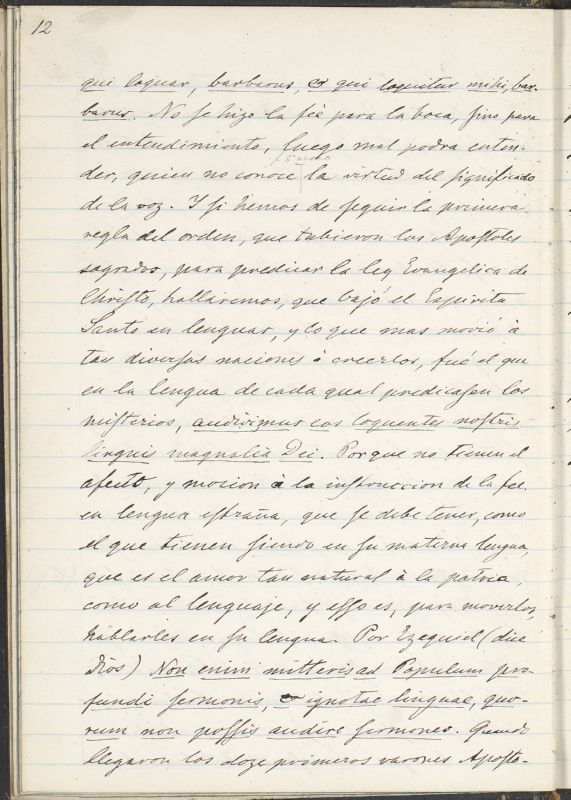 12
qui loquar, barbarus, & qui loquitur mihi, bar-
barus. No se hizo la fè para la boca, sino para
el entendimiento, luego mal podra enten-
der, quien no conoce la virtud del significado
de la voz. Y si hemos de seguir la primera
regla del orden, que tubieron los Apostoles
sagrados, para predicar la ley Evangelica de
Christo, hallaremos, que bajó el Espiritu
Santo en lenguas, y lo que mas movió à
tan diversas naciones à creerlos, fué el que
en la lengua de cada qual predicasen los
misterios, audivimus eos loquentes nostris
linguis magnalia Dei. Porque no tienen el
afecto, y mocion à la instruccion de la fee
en lengua estraña, que se debe tener, como
el que tienen siendo en su materna lengua,
que es el amor tan natural à la patria,
como al lenguaje, y esso es, para moverlos,
hablarles en su lengua. Por Ezequiel (dice
Dios) Non enim mitteris ad Populum pro-
fundi sermonis, & ignotae linguae, quo-
rum non possis audire sermones. Quando
llegaron los doze primeros varones Aposto-